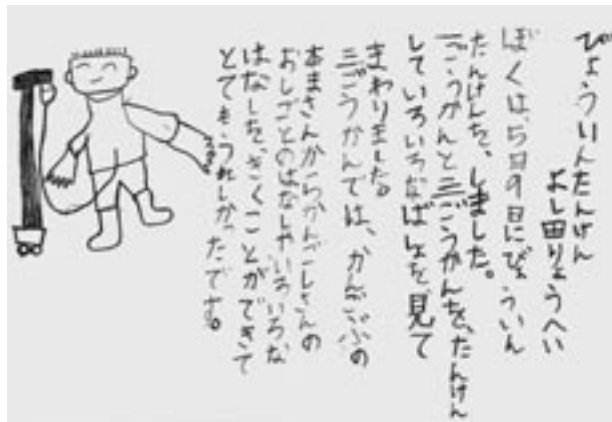 びょういんたんけん
よし田りょうへい
ぼくは、5月9日にびょういん
たんけんを、しました。
二ごうかんと三ごうかんを、たんけん
していろいろなばしょを見て
まわりました。
三ごうかんでは、かんごぶの
さんからかんごしさんの
おしごとのはなしやいろいろな
はなしを、きくことができて
とてもうれしかったです。